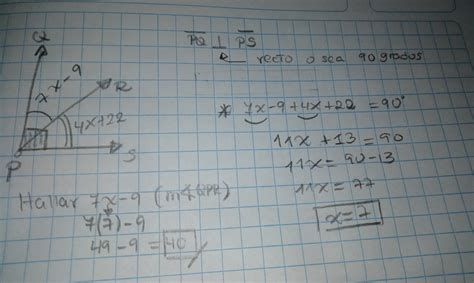 Q
x x-9
R
4x+22
P
S
PQ ⊥ PS
recto o sea 90 grados
* 7x-9+4x+22 = 90°
11x + 13 = 90
11x = 90-13
11x = 77
x=7
Hallar 7x-9 (m∢QPR)
7(7)-9
49-9 = 40